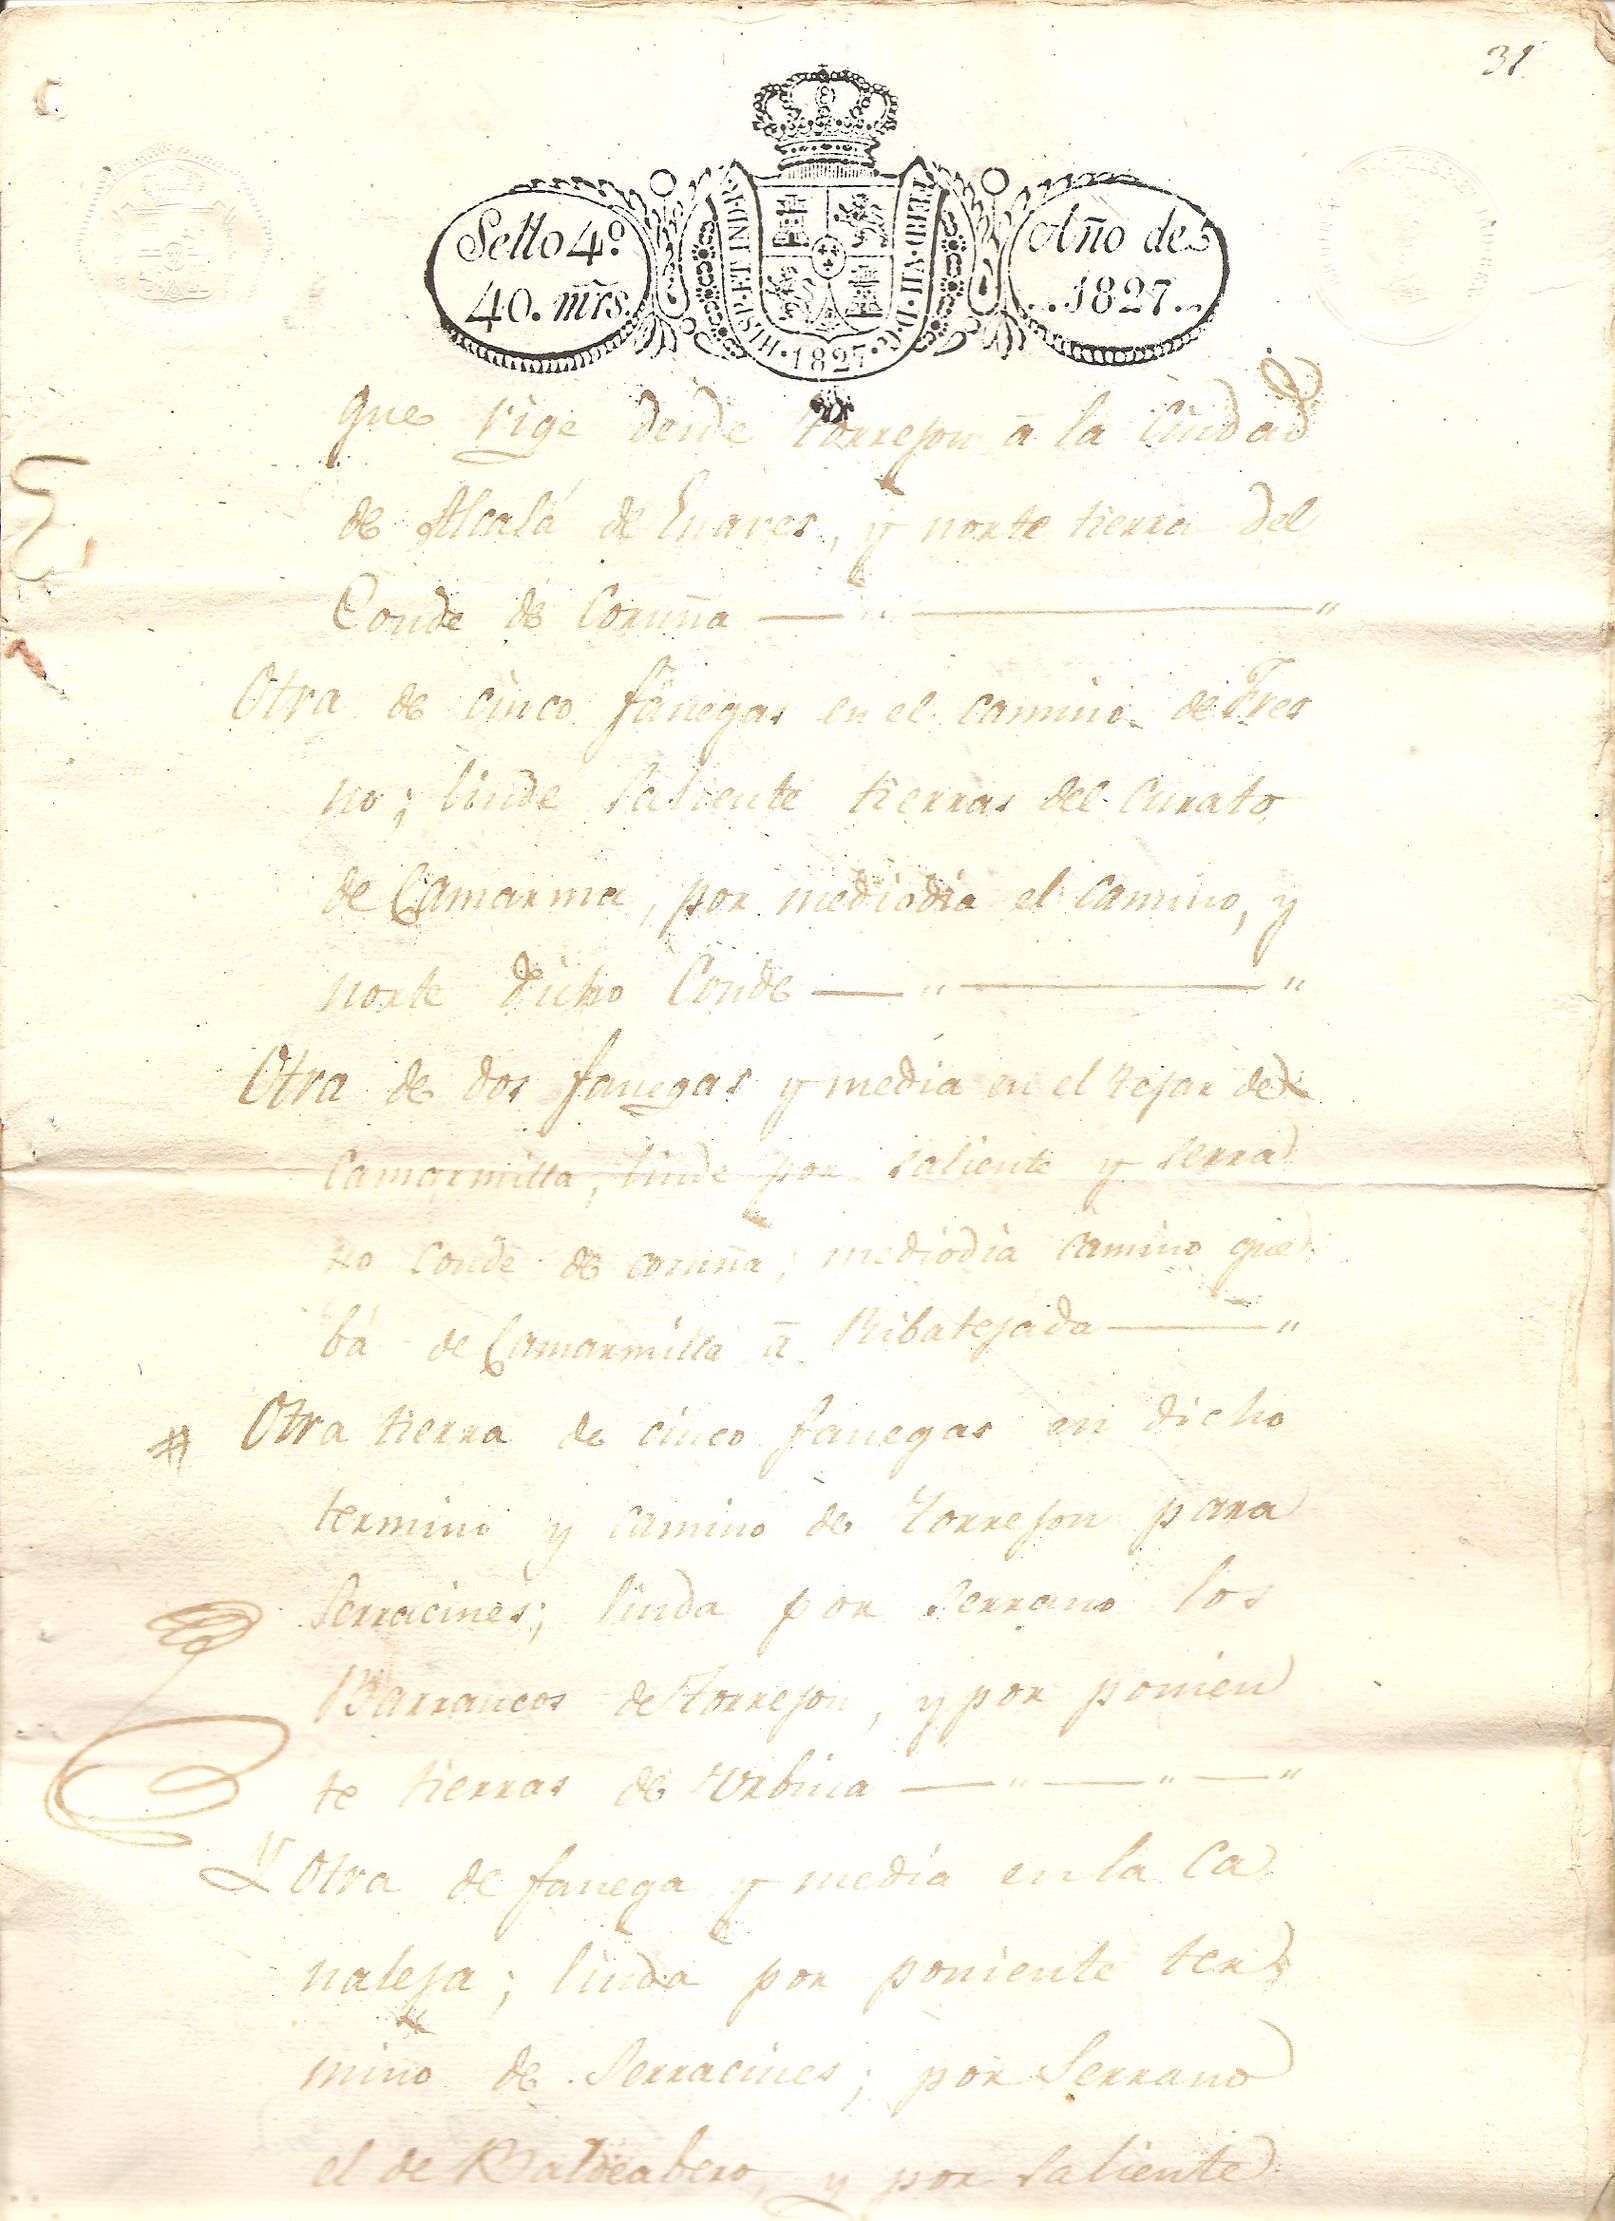 31
Sello 4º
40. mrs.
Año de
1827.
HISP. ET IND. R.
1827
FERD. VII. D. G.
que rige desde Torrejon à la Ciudad
de Alcalá de Enares, y norte tierra del
Conde de Coruña — " — "
Otra de cinco fanegas en el camino de Fres
no; linde saliente tierras del curato
de Camarma, por mediodia el camino, y
norte dicho Conde — " — "
Otra de dos fanegas y media en el tejar de
Camarmilla, linde por saliente y serra
no Conde de coruña; mediodia camino que
bá de Camarmilla à Ribatejada — "
# Otra tierra de cinco fanegas en dicho
termino y camino de Torrejon para
Serracines; linda por serrano los
Barrancos de Torrejon, y por ponien
te tierras de Urbina — " — " — "
Y otra de fanega y media en la Ca
naleja; linda por poniente ter
mino de Serracines; por Serrano
el de Baldeabero, y por saliente